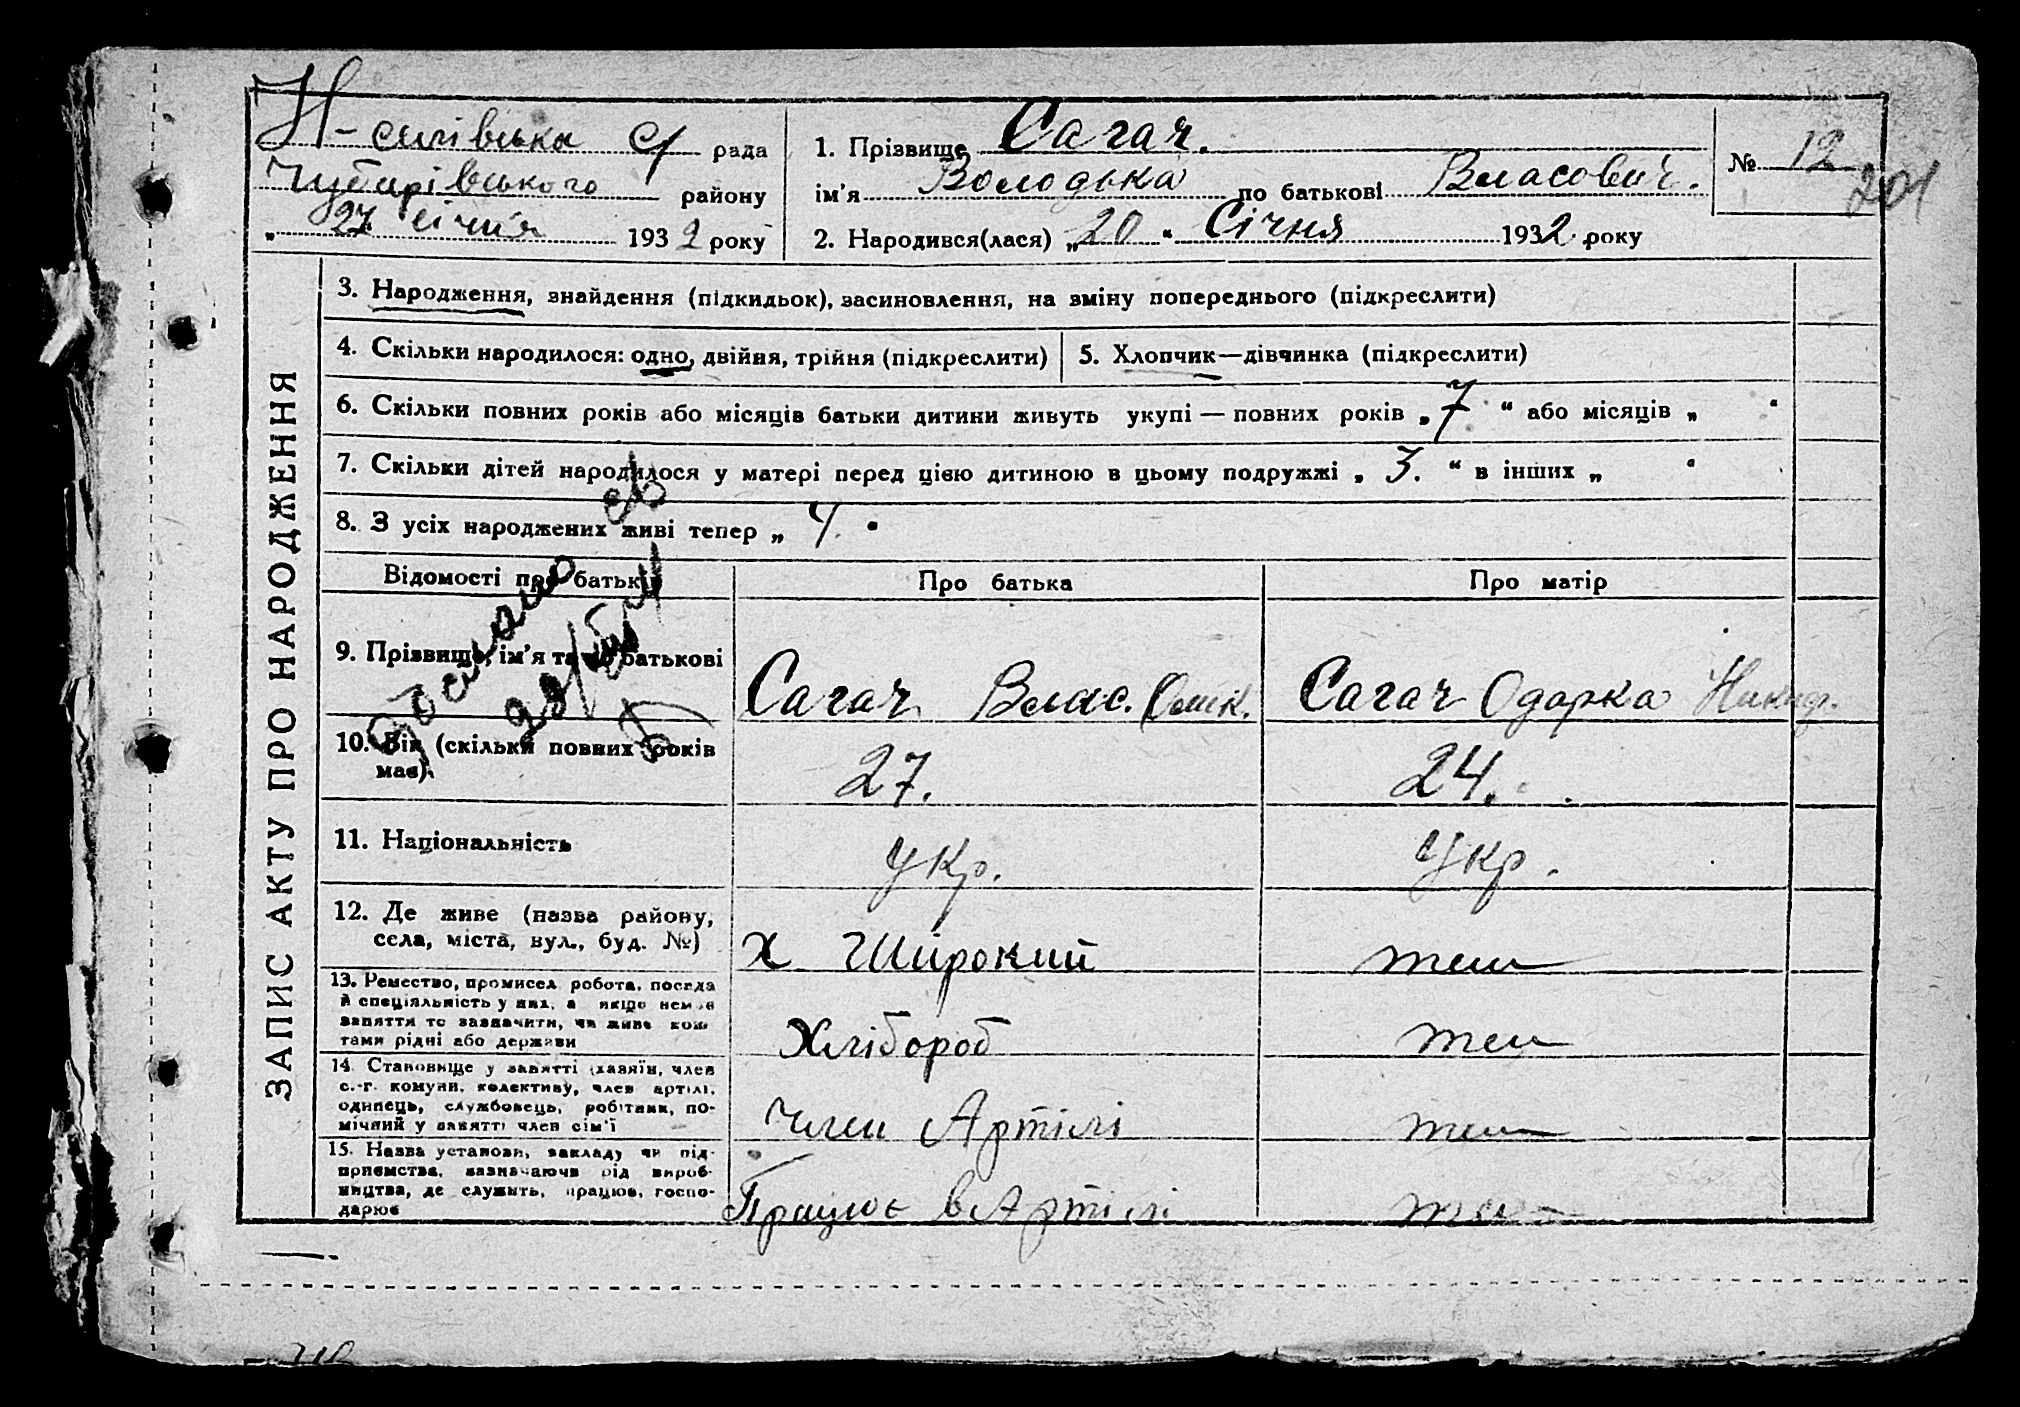 Н-селівська с/ рада
Чубарівського району
„ 27 січня 1932 року
1. Прізвище Сагач.
ім’я Володька по батькові Власович.
2. Народився(лася) „ 20 “ Січня 1932 року
№ 12
201
ЗАПИС АКТУ ПРО НАРОДЖЕННЯ
3. Народження, знайдення (підкидьок), засиновлення, на зміну попереднього (підкреслити)
4. Скільки народилося: одно, двійня, трійня (підкреслити)
5. Хлопчик—дівчинка (підкреслити)
6. Скільки повних років або місяців батьки дитини живуть укупі — повних років „ 7 “ або місяців „ “
7. Скільки дітей народилося у матері перед цією дитиною в цьому подружжі „ 3. “ в інших „ “
8. З усіх народжених живі тепер „ 4.
Відомості про батьків
Про батька
Про матір
9. Прізвище, ім’я та по батькові
Сагач Влас.
Сагач Одарка Никиф.
10. Вік (скільки повних років
має).
27.
24.
11. Національність
укр.
Укр.
12. Де живе (назва району,
села, міста, вул., буд. №)
Х Широкий
теж
13. Ремество, промисел, робота, посада
й спеціяльність у них, а якщо немає
заняття то зазначити, чи живе кош
тами рідні або держави
Хлібороб
теж
14. Становище у занятті (хазяїн, член
с.-г. комуни, колективу, член артілі,
одинець, службовець, робітник, по-
мічний у занятті член сім’ї
Член Артілі
теж
15. Назва установи, закладу чи під-
приємства, зазначаючи рід вироб-
ництва, де служить, працює, госпо-
дарює
Працює в Артілі
теж